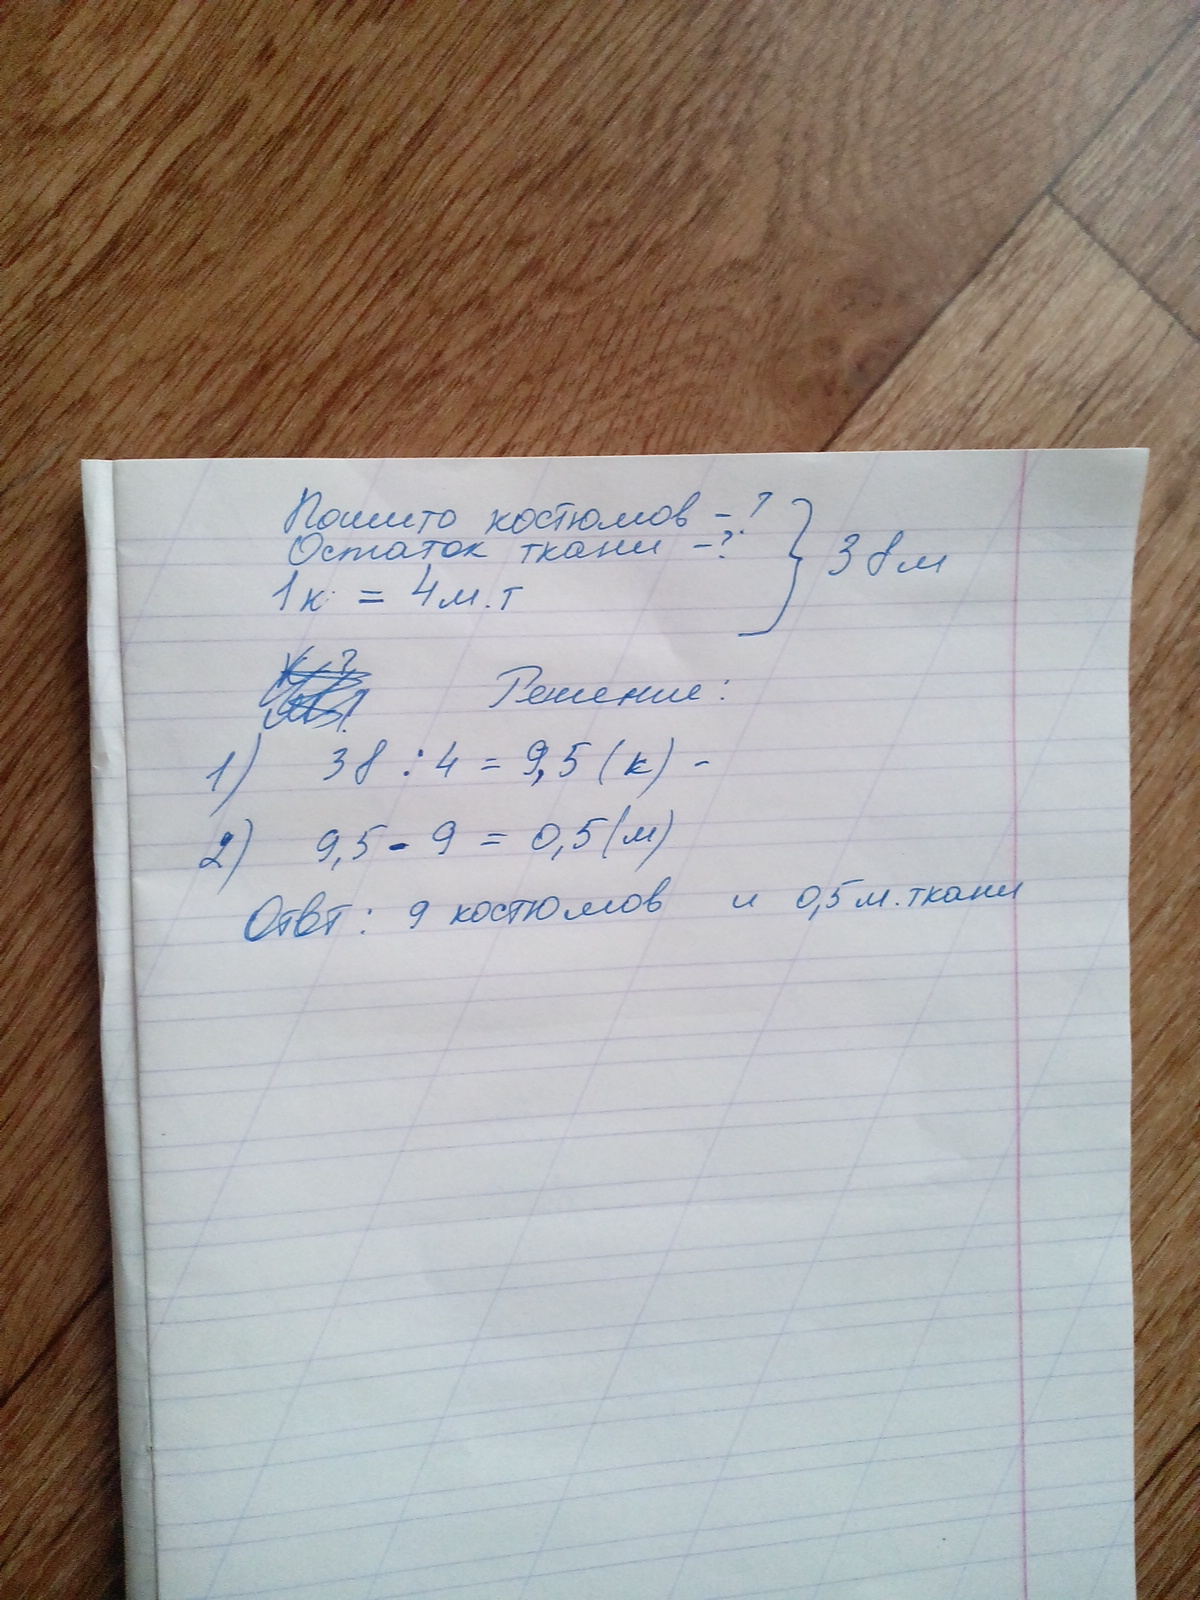 Пошито костюмов - ?
Остаток ткани - ? } 38м
1к = 4м.т
Решение:
1) 38 : 4 = 9,5 (к) -
2) 9,5 - 9 = 0,5 (м)
Отвт: 9 костюмов и 0,5 м. ткани